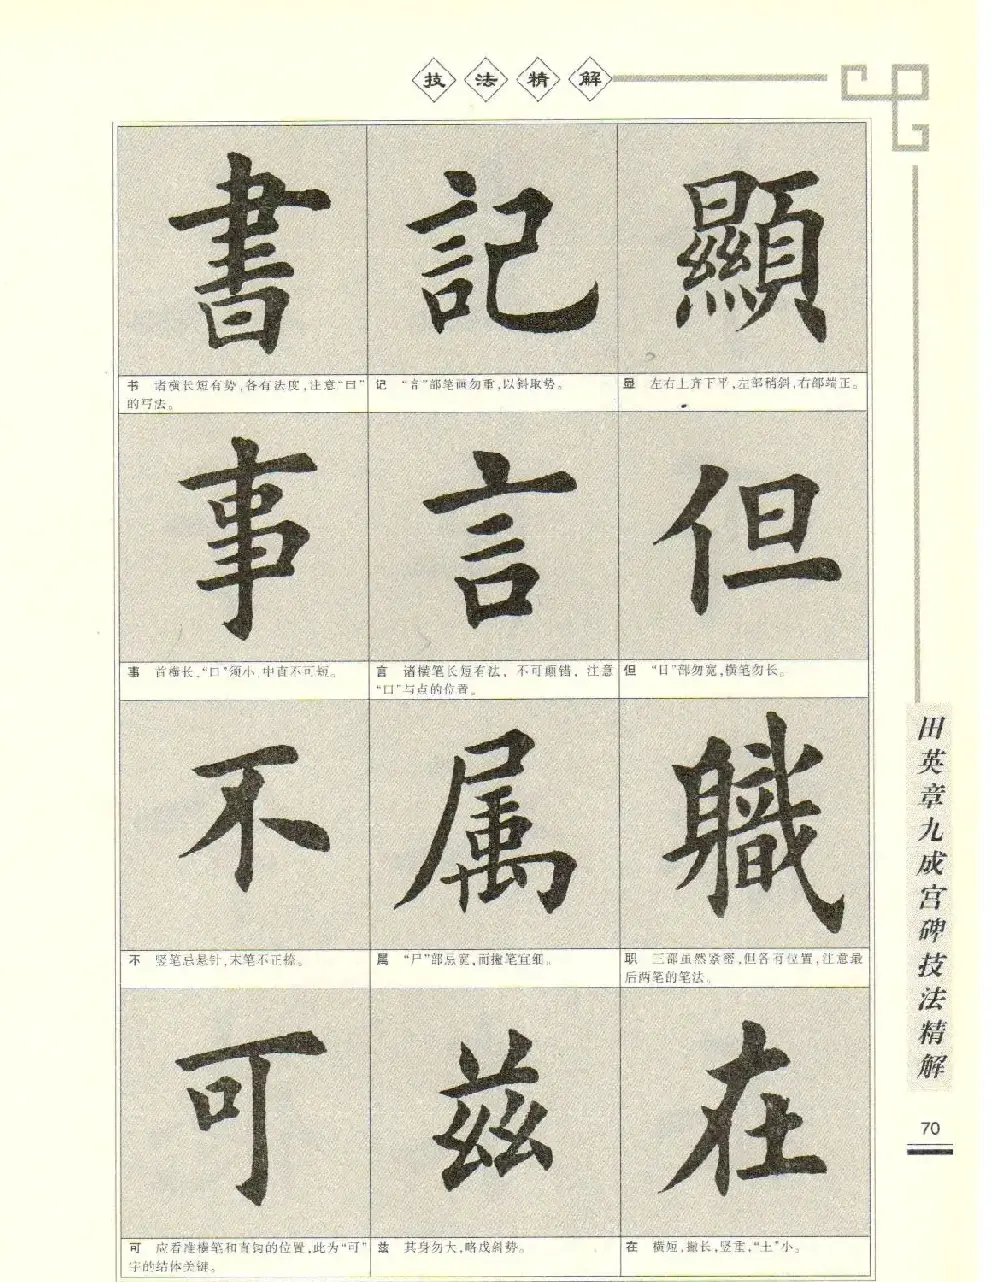 技法精解
書 記 顯
书 诸横长短有势,各有法度,注意“曰”
的写法。
记 “言”部笔画勿重,以斜取势。
显 左右上齐下平,左部稍斜,右部端正。
事 言 但
事 首横长,“口”须小,中直不可短。
言 诸横笔长短有法,不可颠错,注意
“口”与点的位置。
但 “日”部勿宽,横笔勿长。
不 属 職
不 竖笔忌悬针,末笔不正捺。
属 “尸”部忌宽,而撇笔宜细。
职 三部虽然紧密,但各有位置,注意最
后两笔的笔法。
可 兹 在
可 应看准横笔和直钩的位置,此为“可”
字的结体关键。
兹 其身勿大,略成斜势。
在 横短,撇长,竖重,“土”小。
田英章九成宫碑技法精解
70